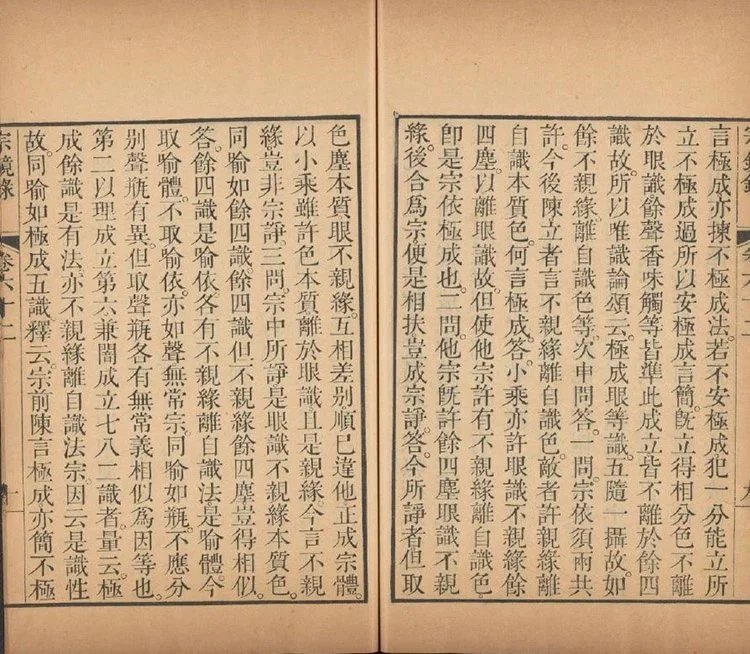 言極成亦揀不極成法。若不安極成犯一分能立所
立不極成過。所以安極成言簡。旣立得相分色不離
於眼識。餘聲香味觸等。皆準此成立。皆不離於餘四
識故。所以唯識論頌云。極成眼等識。五隨一攝故。如
餘不親緣離自識色等。次申問答。一問。宗依須兩共
許。今後陳立者言不親緣離自識色。敵者許親緣離
自識色。何言極成。答。小乘亦許眼識不親緣餘
四塵。以離眼識故。但使他宗許有不親緣離自識色。
卽是宗依極成也。二問。他宗旣許餘四塵眼識不親
緣。後合爲宗。便是相扶。豈成宗諍。答。今所諍者。但取
色塵本質。眼不親緣。互相差別。順巳違他。正成宗體。
以小乘雖許色本質離於眼識。且是親緣。今言不親
緣。豈非宗諍。三問。宗中所諍是眼識不親緣本質色。
同喻如餘四識。餘四識但不親緣餘四塵。豈得相似。
答。餘四識是喻依。各有不親緣離自識法是喻體。今
取喻體。不取喻依。亦如聲無常宗。同喻如瓶。不應分
別聲瓶有異。但取聲瓶各有無常義相似爲因等也。
第二以理成立第六。兼闇成立七八二識者。量云。極
成餘識是有法。亦不親緣離自識法。宗。因云。是識性
故。同喻如極成五識。釋云。宗前陳言極成。亦簡不極
宗鏡錄
卷六十二